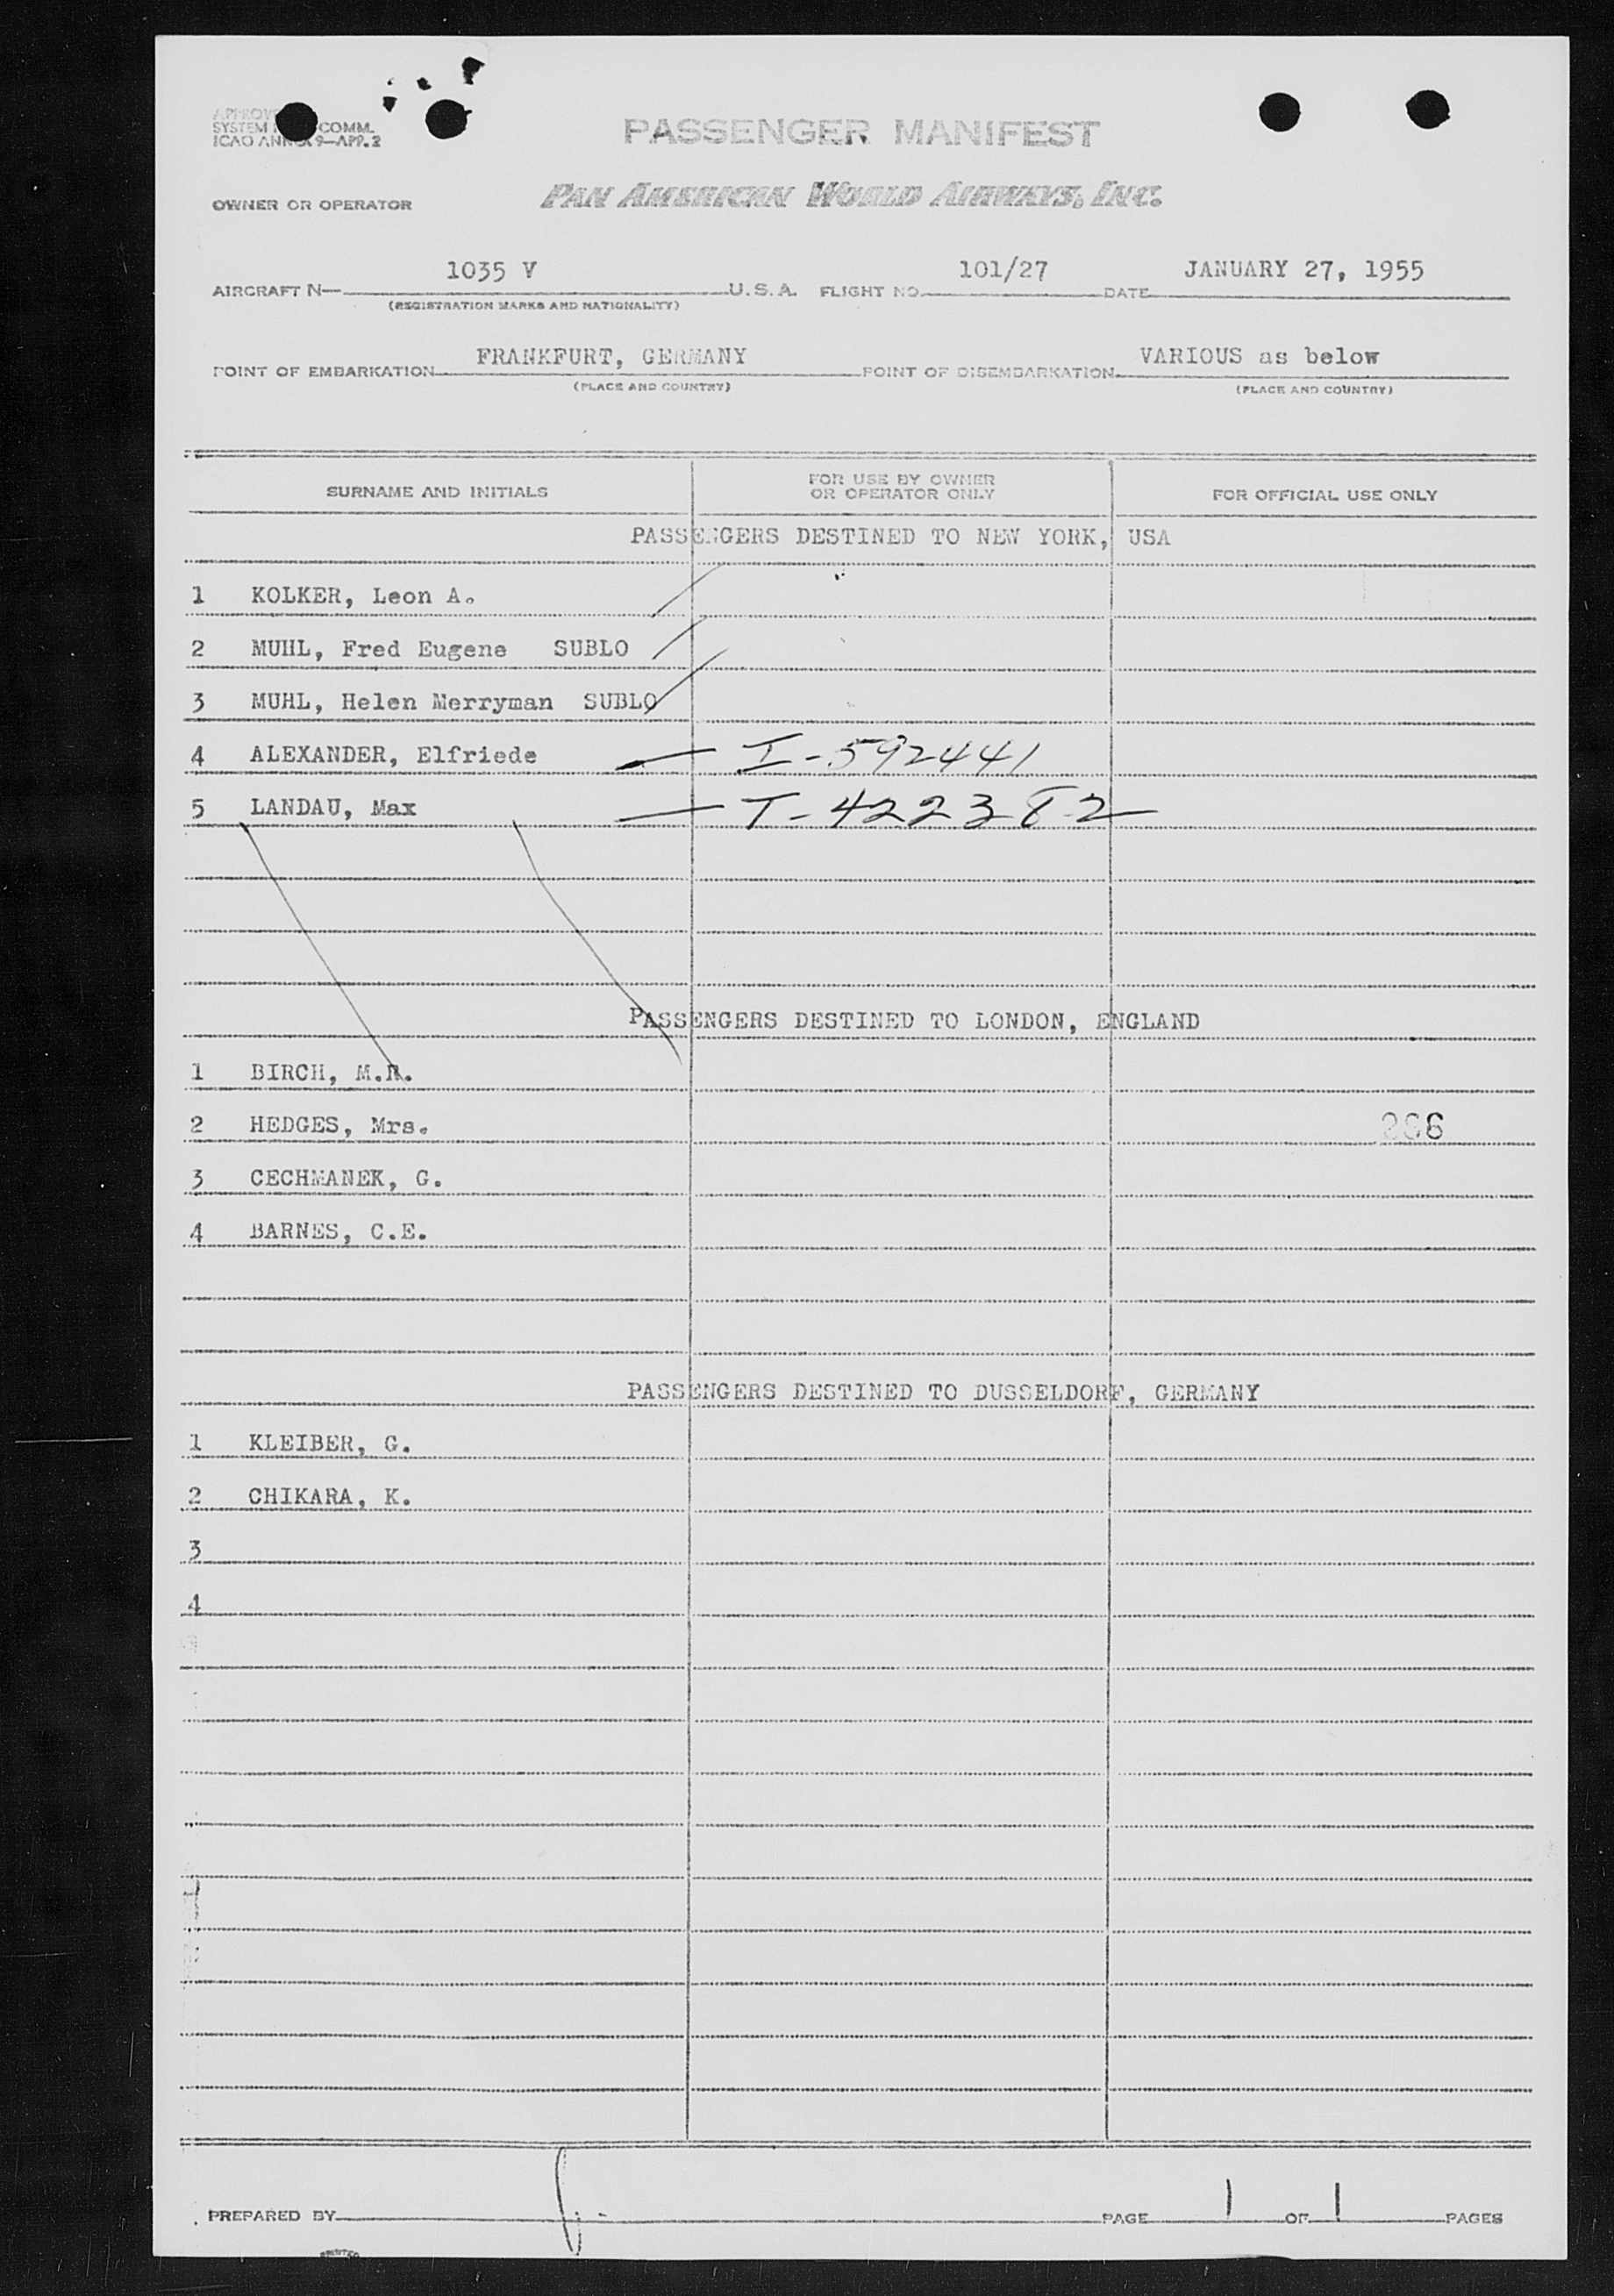 SYSTEM COMM.
ICAO ANNEX 9—APP. 2
PASSENGER MANIFEST
OWNER OR OPERATOR PAN AMERICAN WORLD AIRWAYS, INC.
AIRCRAFT N— 1035 V U.S.A. FLIGHT NO. 101/27 DATE JANUARY 27, 1955
(REGISTRATION MARKS AND NATIONALITY)
POINT OF EMBARKATION FRANKFURT, GERMANY POINT OF DISEMBARKATION VARIOUS as below
(PLACE AND COUNTRY) (PLACE AND COUNTRY)
SURNAME AND INITIALS FOR USE BY OWNER OR OPERATOR ONLY FOR OFFICIAL USE ONLY
PASSENGERS DESTINED TO NEW YORK, USA
1 KOLKER, Leon A.
2 MUHL, Fred Eugene SUBLO
3 MUHL, Helen Merryman SUBLO
4 ALEXANDER, Elfriede — I-592441
5 LANDAU, Max — T-422382
PASSENGERS DESTINED TO LONDON, ENGLAND
1 BIRCH, M.R.
2 HEDGES, Mrs.
3 CECHMANEK, G.
4 BARNES, C.E.
PASSENGERS DESTINED TO DUSSELDORF, GERMANY
1 KLEIBER, G.
2 CHIKARA, K.
3
4
PREPARED BY PAGE 1 OF 1 PAGES